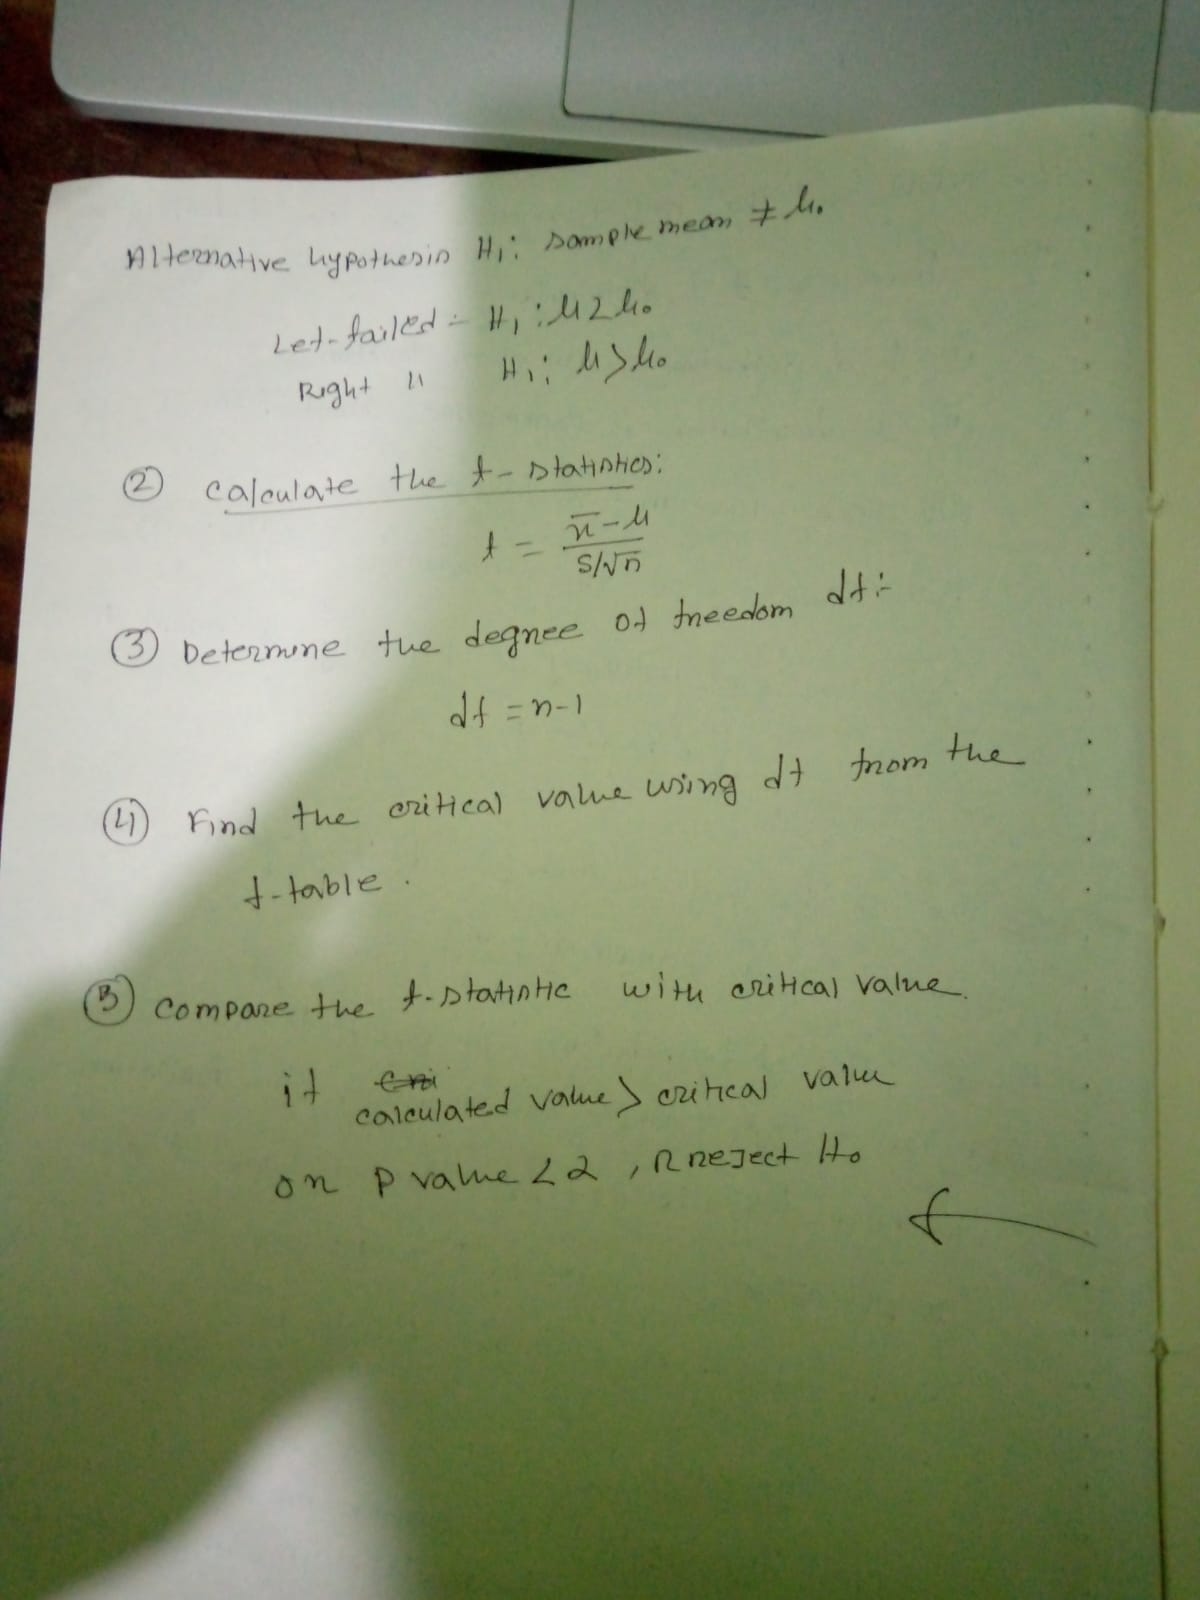 Alternative hypothesis H₁: sample mean ≠ μ₀
Let-failed :- H₁ : μ < μ₀
Right " H₁: μ > μ₀
② Calculate the t-statistics:
t = (x̄ - μ) / (S/√n)
③ Determine the degree of freedom df :-
df = n-1
④ Find the critical value using df from the
t-table.
⑤ Compare the t-statistic with critical value.
if calculated value > critical value
or P value < α , Rreject H₀